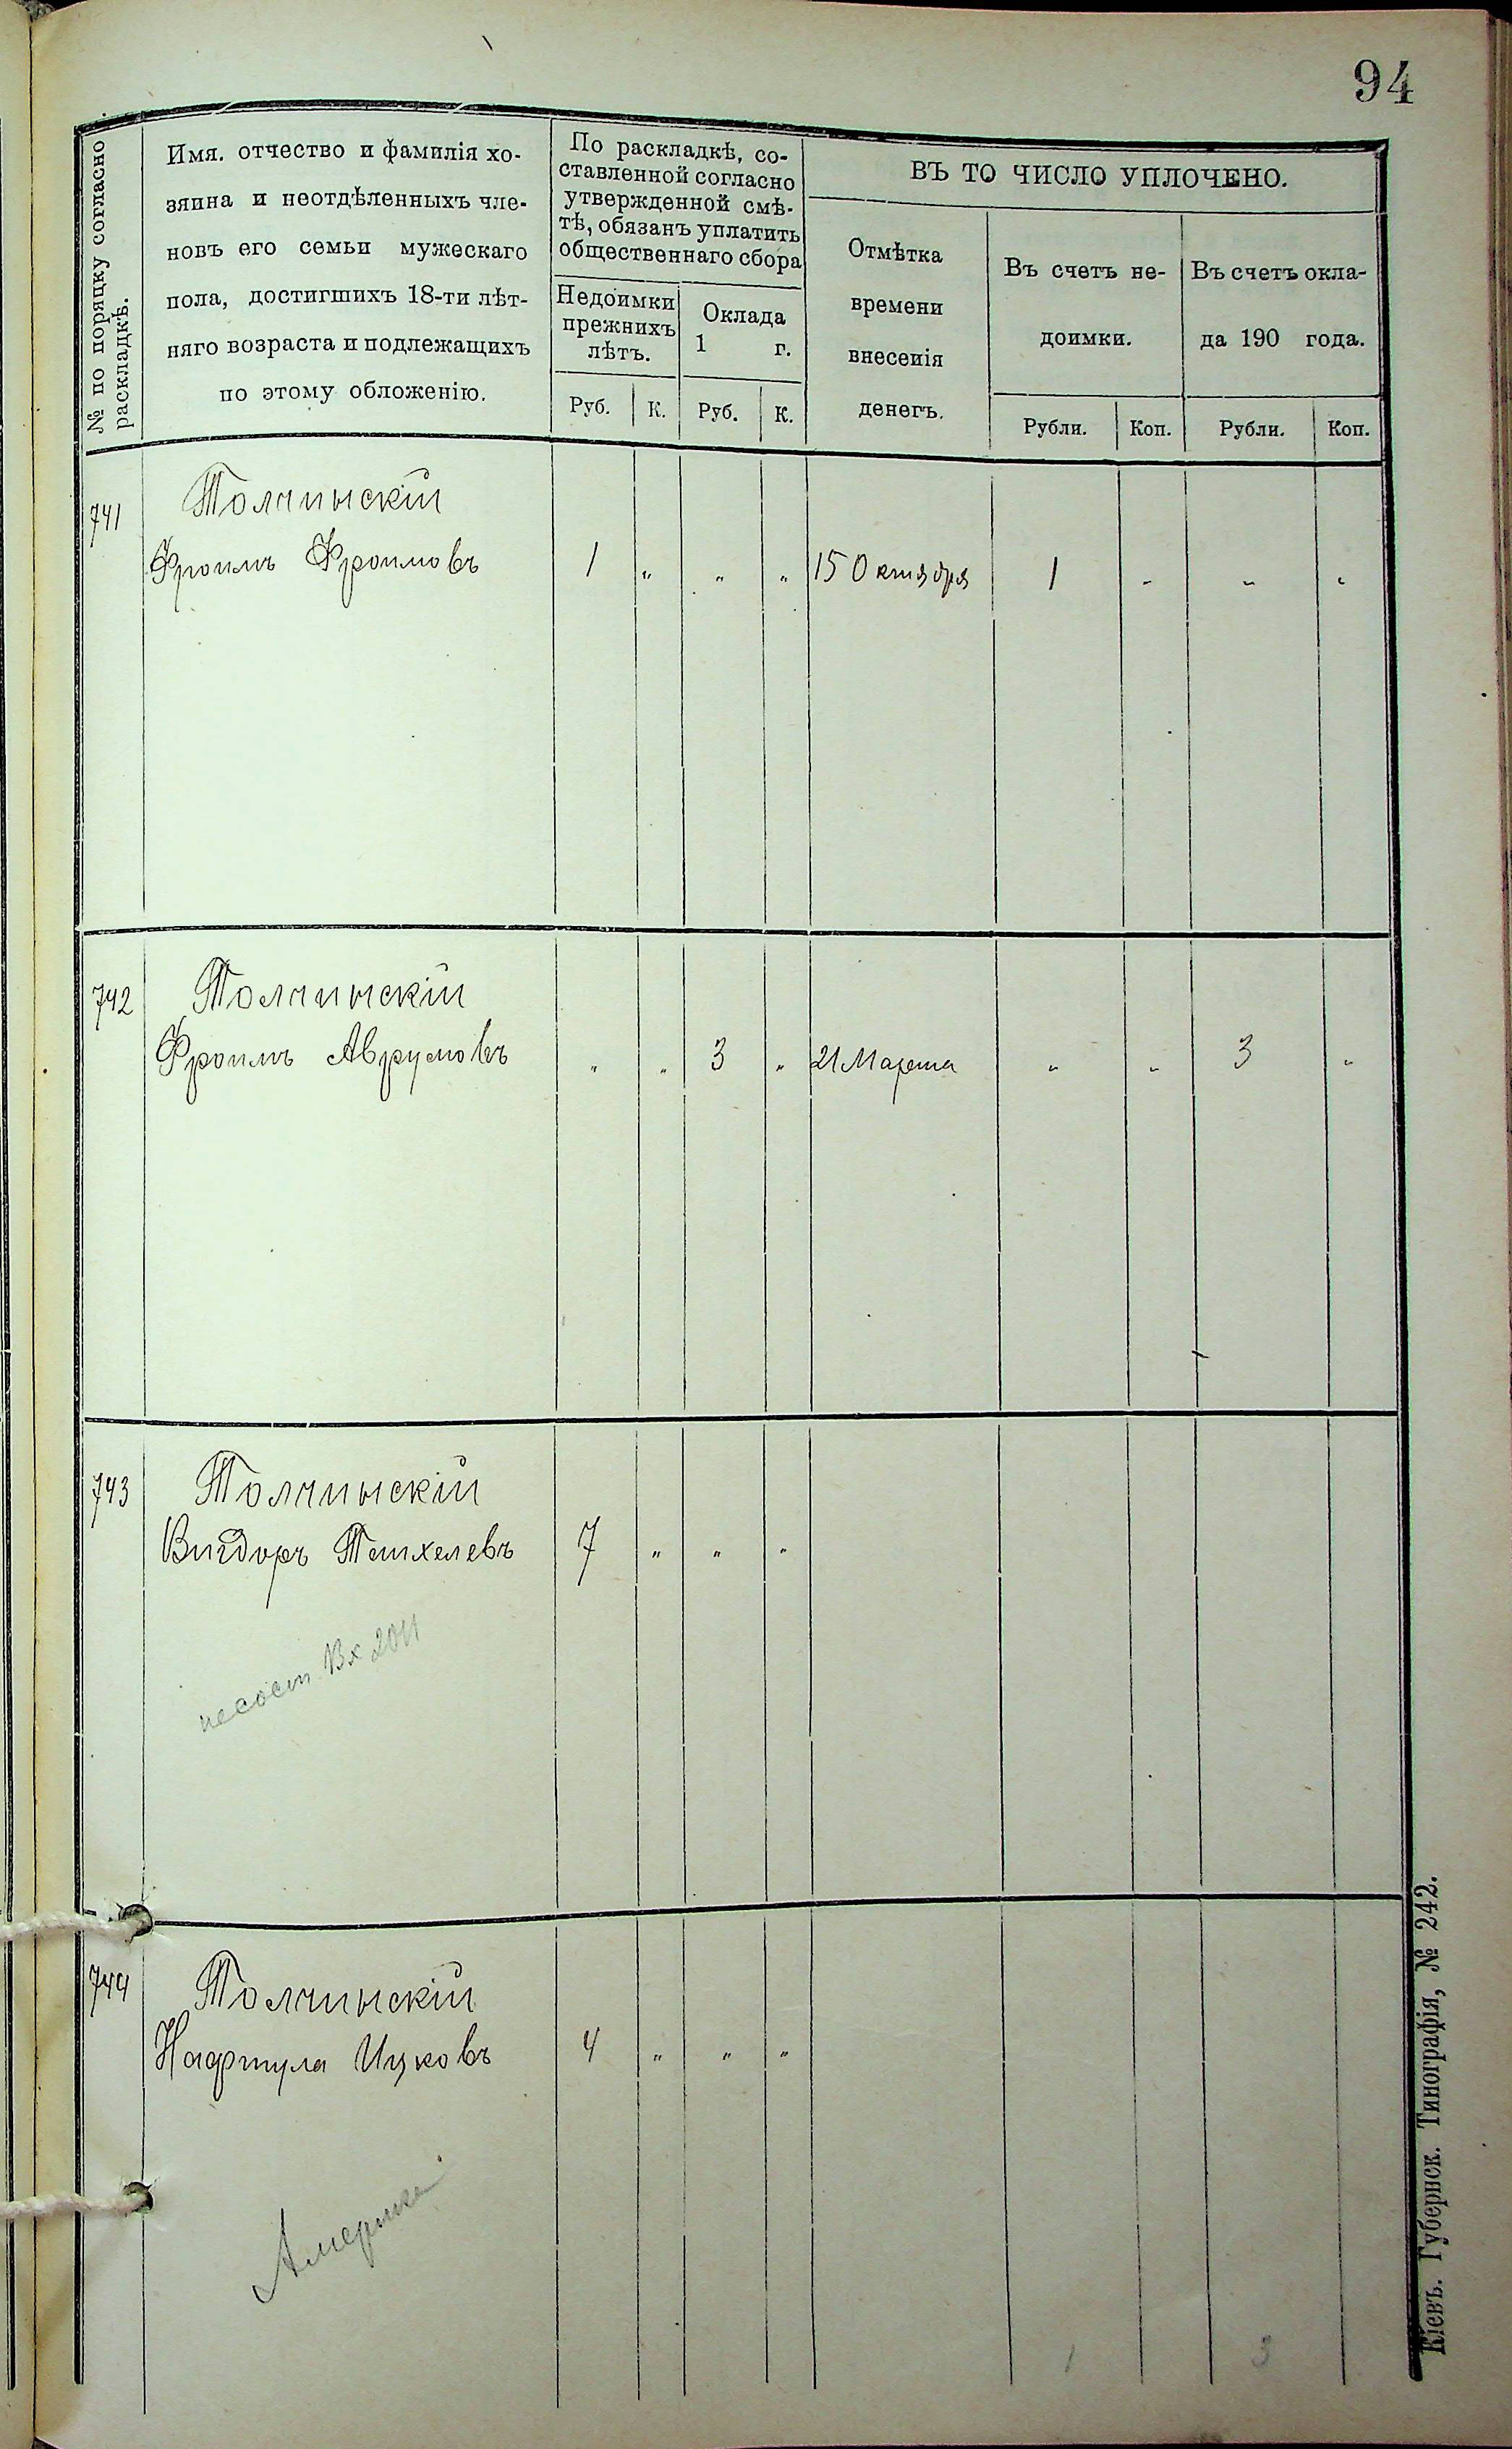 94
№ по порядку согласно
раскладкѣ.
Имя. отчество и фамилія хо-
зяина и неотдѣленныхъ чле-
новъ его семьи мужескаго
пола, достигшихъ 18-ти лѣт-
няго возраста и подлежащихъ
по этому обложенію.
По раскладкѣ, со-
ставленной согласно
утвержденной смѣ-
тѣ, обязанъ уплатить
общественнаго сбора
Недоимки
прежнихъ
лѣтъ.
Оклада
1 г.
Руб. К. Руб. К.
ВЪ ТО ЧИСЛО УПЛОЧЕНО.
Отмѣтка
времени
внесенія
денегъ.
Въ счетъ не-
доимки.
Въ счетъ окла-
да 190 года.
Рубли. Коп. Рубли. Коп.
741 Толчинскій
Фроимъ Фроимовъ 1 „ „ „ 15 Октября 1 „ „ „
742 Толчинскій
Фроимъ Аврумовъ „ „ 3 „ 21 Марта „ „ 3 „
743 Толчинскій
Вигдоръ Темхелевъ 7 „ „ „
несост. Вх 2011
744 Толчинскій
Нафтула Ицковъ 4 „ „ „
Америка
1 3
Кіевъ. Губернск. Типографія, № 242.